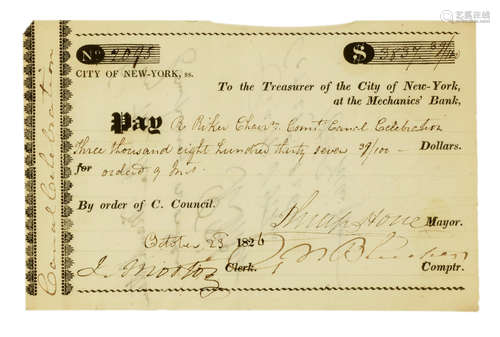 Canal Celebration
No 2095
$ 3837 39/100
CITY OF NEW-YORK, ss.
To the Treasurer of the City of New-York,
at the Mechanics' Bank,
Pay R Riker Chairn Comt Canal Celebration
three thousand eight hundred thirty seven 39/100 Dollars.
for ordered 9 Ins
By order of C. Council.
Philip Hone Mayor.
October 23 1826
J. Morton Clerk. Comptr.